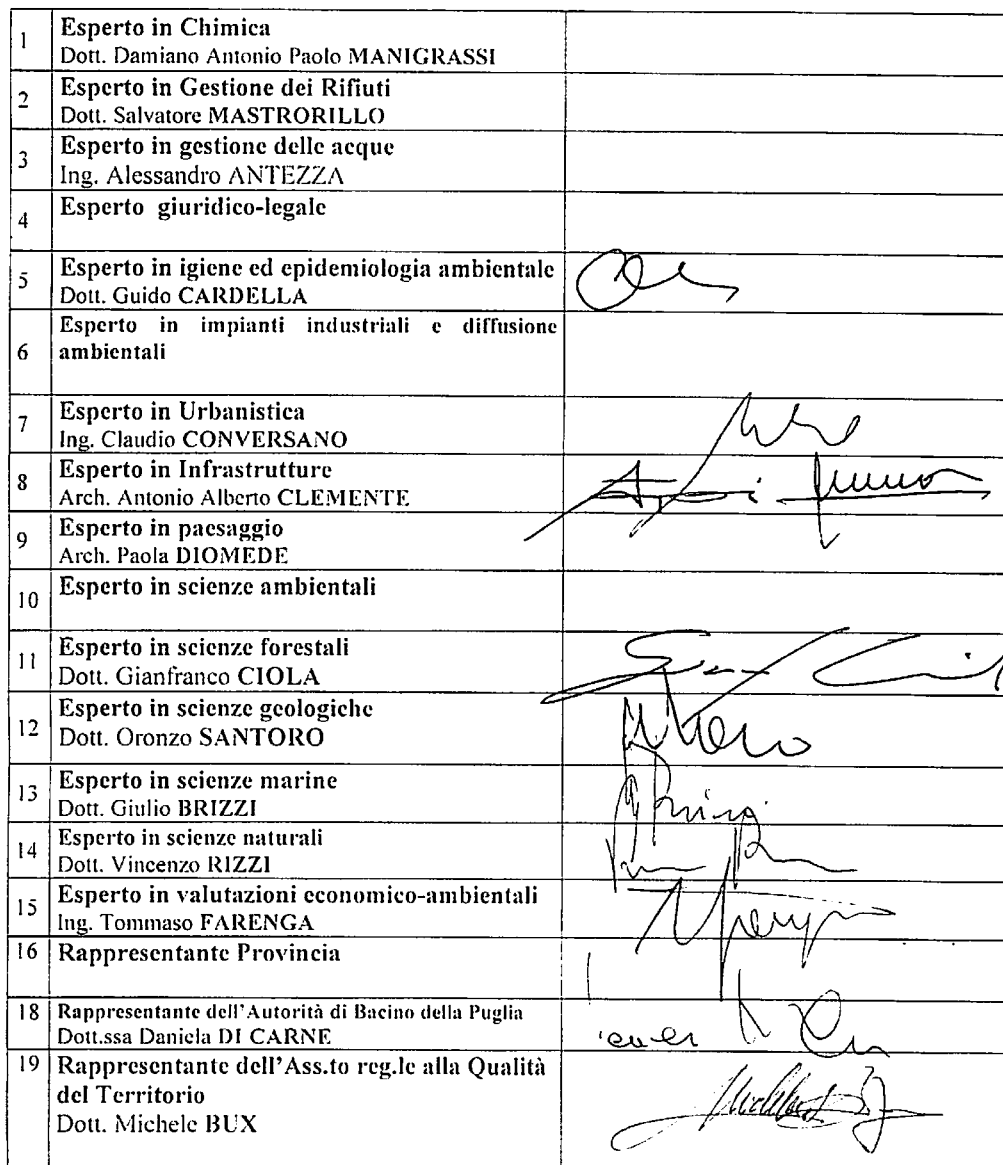 1 Esperto in Chimica
Dott. Damiano Antonio Paolo MANIGRASSI
2 Esperto in Gestione dei Rifiuti
Dott. Salvatore MASTRORILLO
3 Esperto in gestione delle acque
Ing. Alessandro ANTEZZA
4 Esperto giuridico-legale
5 Esperto in igiene ed epidemiologia ambientale
Dott. Guido CARDELLA
6 Esperto in impianti industriali e diffusione
ambientali
7 Esperto in Urbanistica
Ing. Claudio CONVERSANO
8 Esperto in Infrastrutture
Arch. Antonio Alberto CLEMENTE
9 Esperto in paesaggio
Arch. Paola DIOMEDE
10 Esperto in scienze ambientali
11 Esperto in scienze forestali
Dott. Gianfranco CIOLA
12 Esperto in scienze geologiche
Dott. Oronzo SANTORO
13 Esperto in scienze marine
Dott. Giulio BRIZZI
14 Esperto in scienze naturali
Dott. Vincenzo RIZZI
15 Esperto in valutazioni economico-ambientali
Ing. Tommaso FARENGA
16 Rappresentante Provincia
18 Rappresentante dell'Autorità di Bacino della Puglia
Dott.ssa Daniela DI CARNE
19 Rappresentante dell'Ass.to reg.le alla Qualità
del Territorio
Dott. Michele BUX